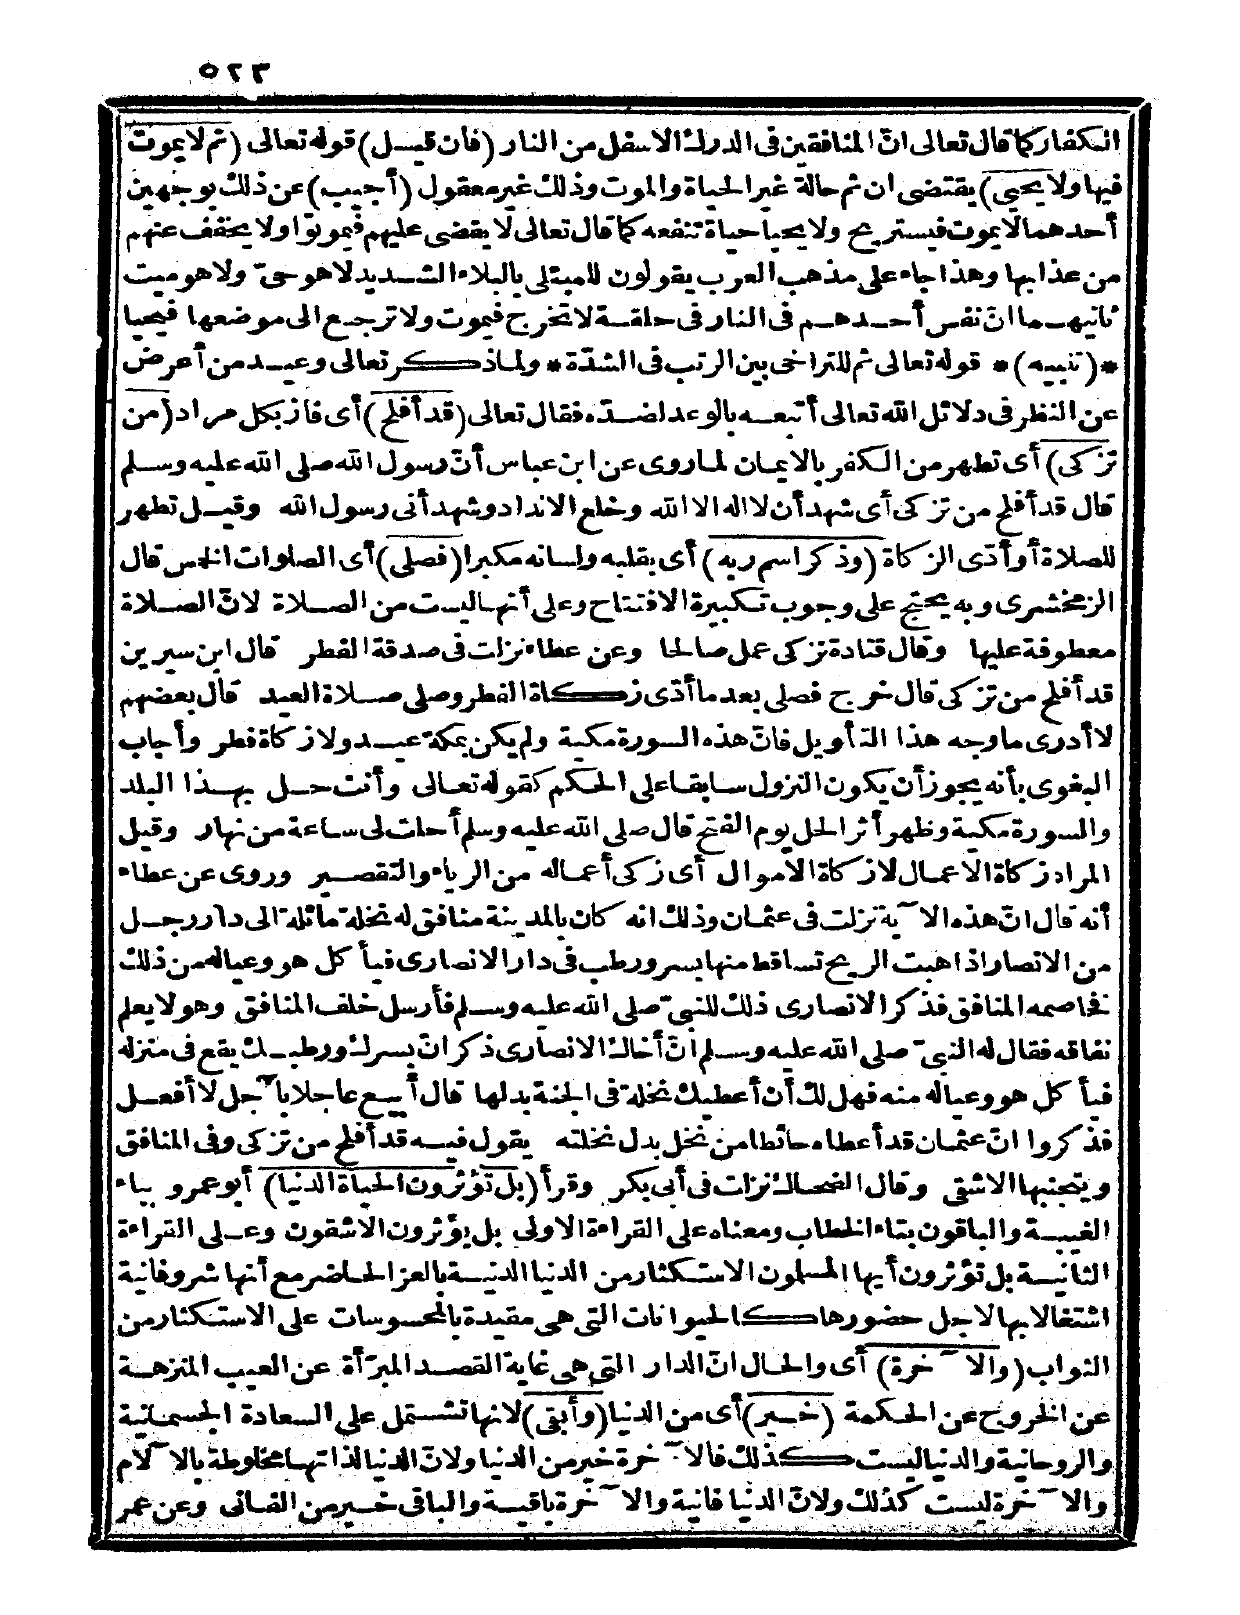 ٥٢٣
الكفار كما قال تعالى انّ المنافقين فى الدرك الاسفل من النار (فان قيل) قوله تعالى (ثم لا يموت
فيها ولا يحيى) يقتضى ان ثم حالة غير الحياة والموت وذلك غير معقول (أجيب) عن ذلك بوجهين
أحدهما لا يموت فيستريح ولا يحيا حياة تنفعه كما قال تعالى لا يقضى عليهم فيموتوا ولا يخفف عنهم
من عذابها وهذا جاء على مذهب العرب يقولون للمبتلى بالبلاء الشديد لا هو حىّ ولا هو ميت
ثانيهما انّ نفس أحدهم فى النار فى حلقه لا تخرج فيموت ولا ترجع الى موضعها فيحيا
*(تنبيه)* قوله تعالى ثم للتراخى بين الرتب فى الشدّة * ولما ذكر تعالى وعيد من أعرض
عن النظر فى دلائل الله تعالى أتبعه بالوعد لضدّه فقال تعالى (قد أفلح) أى فاز بكل مراد (من
تزكى) أى تطهر من الكفر بالايمان لما روى عن ابن عباس أنّ رسول الله صلى الله عليه وسلم
قال قد أفلح من تزكى أى شهد أن لا اله الا الله وخلع الانداد وشهد أنى رسول الله وقيل تطهر
للصلاة أو أدّى الزكاة (وذكر اسم ربه) أى بقلبه ولسانه مكبرا (فصلى) أى الصلوات الخمس قال
الزمخشرى وبه يحتج على وجوب تكبيرة الافتتاح وعلى أنها ليست من الصلاة لانّ الصلاة
معطوفة عليها وقال قتادة تزكى عمل صالحا وعن عطاء نزلت فى صدقة الفطر قال ابن سيرين
قد أفلح من تزكى قال خرج فصلى بعد ما أدّى زكاة الفطر وصلى صلاة العيد قال بعضهم
لا أدرى ما وجه هذا التأويل فانّ هذه السورة مكية ولم يكن بمكة عيد ولا زكاة فطر وأجاب
البغوى بأنه يجوز أن يكون النزول سابقا على الحكم كقوله تعالى وأنت حل بهذا البلد
والسورة مكية وظهر أثر الحل يوم الفتح قال صلى الله عليه وسلم أحلت لى ساعة من نهار وقيل
المراد زكاة الاعمال لا زكاة الاموال أى زكى أعماله من الرياء والتقصير وروى عن عطاء
أنه قال انّ هذه الآية نزلت فى عثمان وذلك انه كان بالمدينة منافق له نخلة مائلة الى دار رجل
من الانصار اذا هبت الريح تساقط منها بسر ورطب فى دار الانصارى فيأكل هو وعياله من ذلك
فخاصمه المنافق فذكر الانصارى ذلك للنبىّ صلى الله عليه وسلم فأرسل خلف المنافق وهو لا يعلم
نفاقه فقال له النبىّ صلى الله عليه وسلم انّ أخاك الانصارى ذكر انّ بسرك ورطبك يقع فى منزله
فيأكل هو وعياله منه فهل لك أن أعطيك نخلة فى الجنة بدلها قال أبيع عاجلا بآجل لا أفعل
فذكروا انّ عثمان قد أعطاه حائطا من نخل بدل نخلته يقول فيه قد أفلح من تزكى وفى المنافق
ويتجنبها الاشقى وقال الضحاك نزلت فى أبى بكر وقرأ (بل تؤثرون الحياة الدنيا) أبو عمرو بياء
الغيبة والباقون بتاء الخطاب ومعناه على القراءة الاولى بل يؤثرون الاشقون وعلى القراءة
الثانية بل تؤثرون أيها المسلمون الاستكثار من الدنيا الدنية بالعز الحاضر مع أنها شر وفانية
اشتغالا بها لاجل حضورها كالحيوانات التى هى مقيدة بالمحسوسات على الاستكثار من
الثواب (والآخرة) أى والحال انّ الدار التى هى غاية القصد المبرّأة عن العيب المنزهة
عن الخروج عن الحكمة (خير) أى من الدنيا (وأبقى) لانها تشتمل على السعادة الجسمانية
والروحانية والدنيا ليست كذلك فالآخرة خير من الدنيا ولانّ الدنيا لذاتها مخلوطة بالآلام
والآخرة ليست كذلك ولانّ الدنيا فانية والآخرة باقية والباقى خير من الفانى وعن عمر